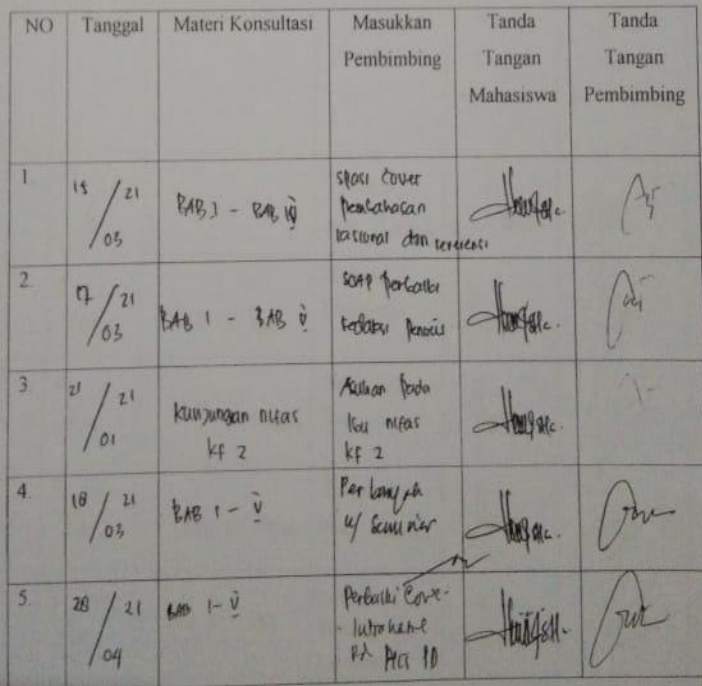 NO Tanggal Materi Konsultasi Masukkan Pembimbing Tanda Tangan Mahasiswa Tanda Tangan Pembimbing
1. 15/03 21 BAB I - BAB IV
spasi cover
pembahasan
rasional dan referensi
2. 17/03 21 BAB I - BAB V
SOAP perbaiki
redaksi penulis
3. 21/01 21 kunjungan nifas
KF 2
Asuhan pada
Ibu nifas
KF 2
4. 18/03 21 BAB I - V
u/ Seminar
5. 28/04 21 BAB I - V
Perbaiki Cover